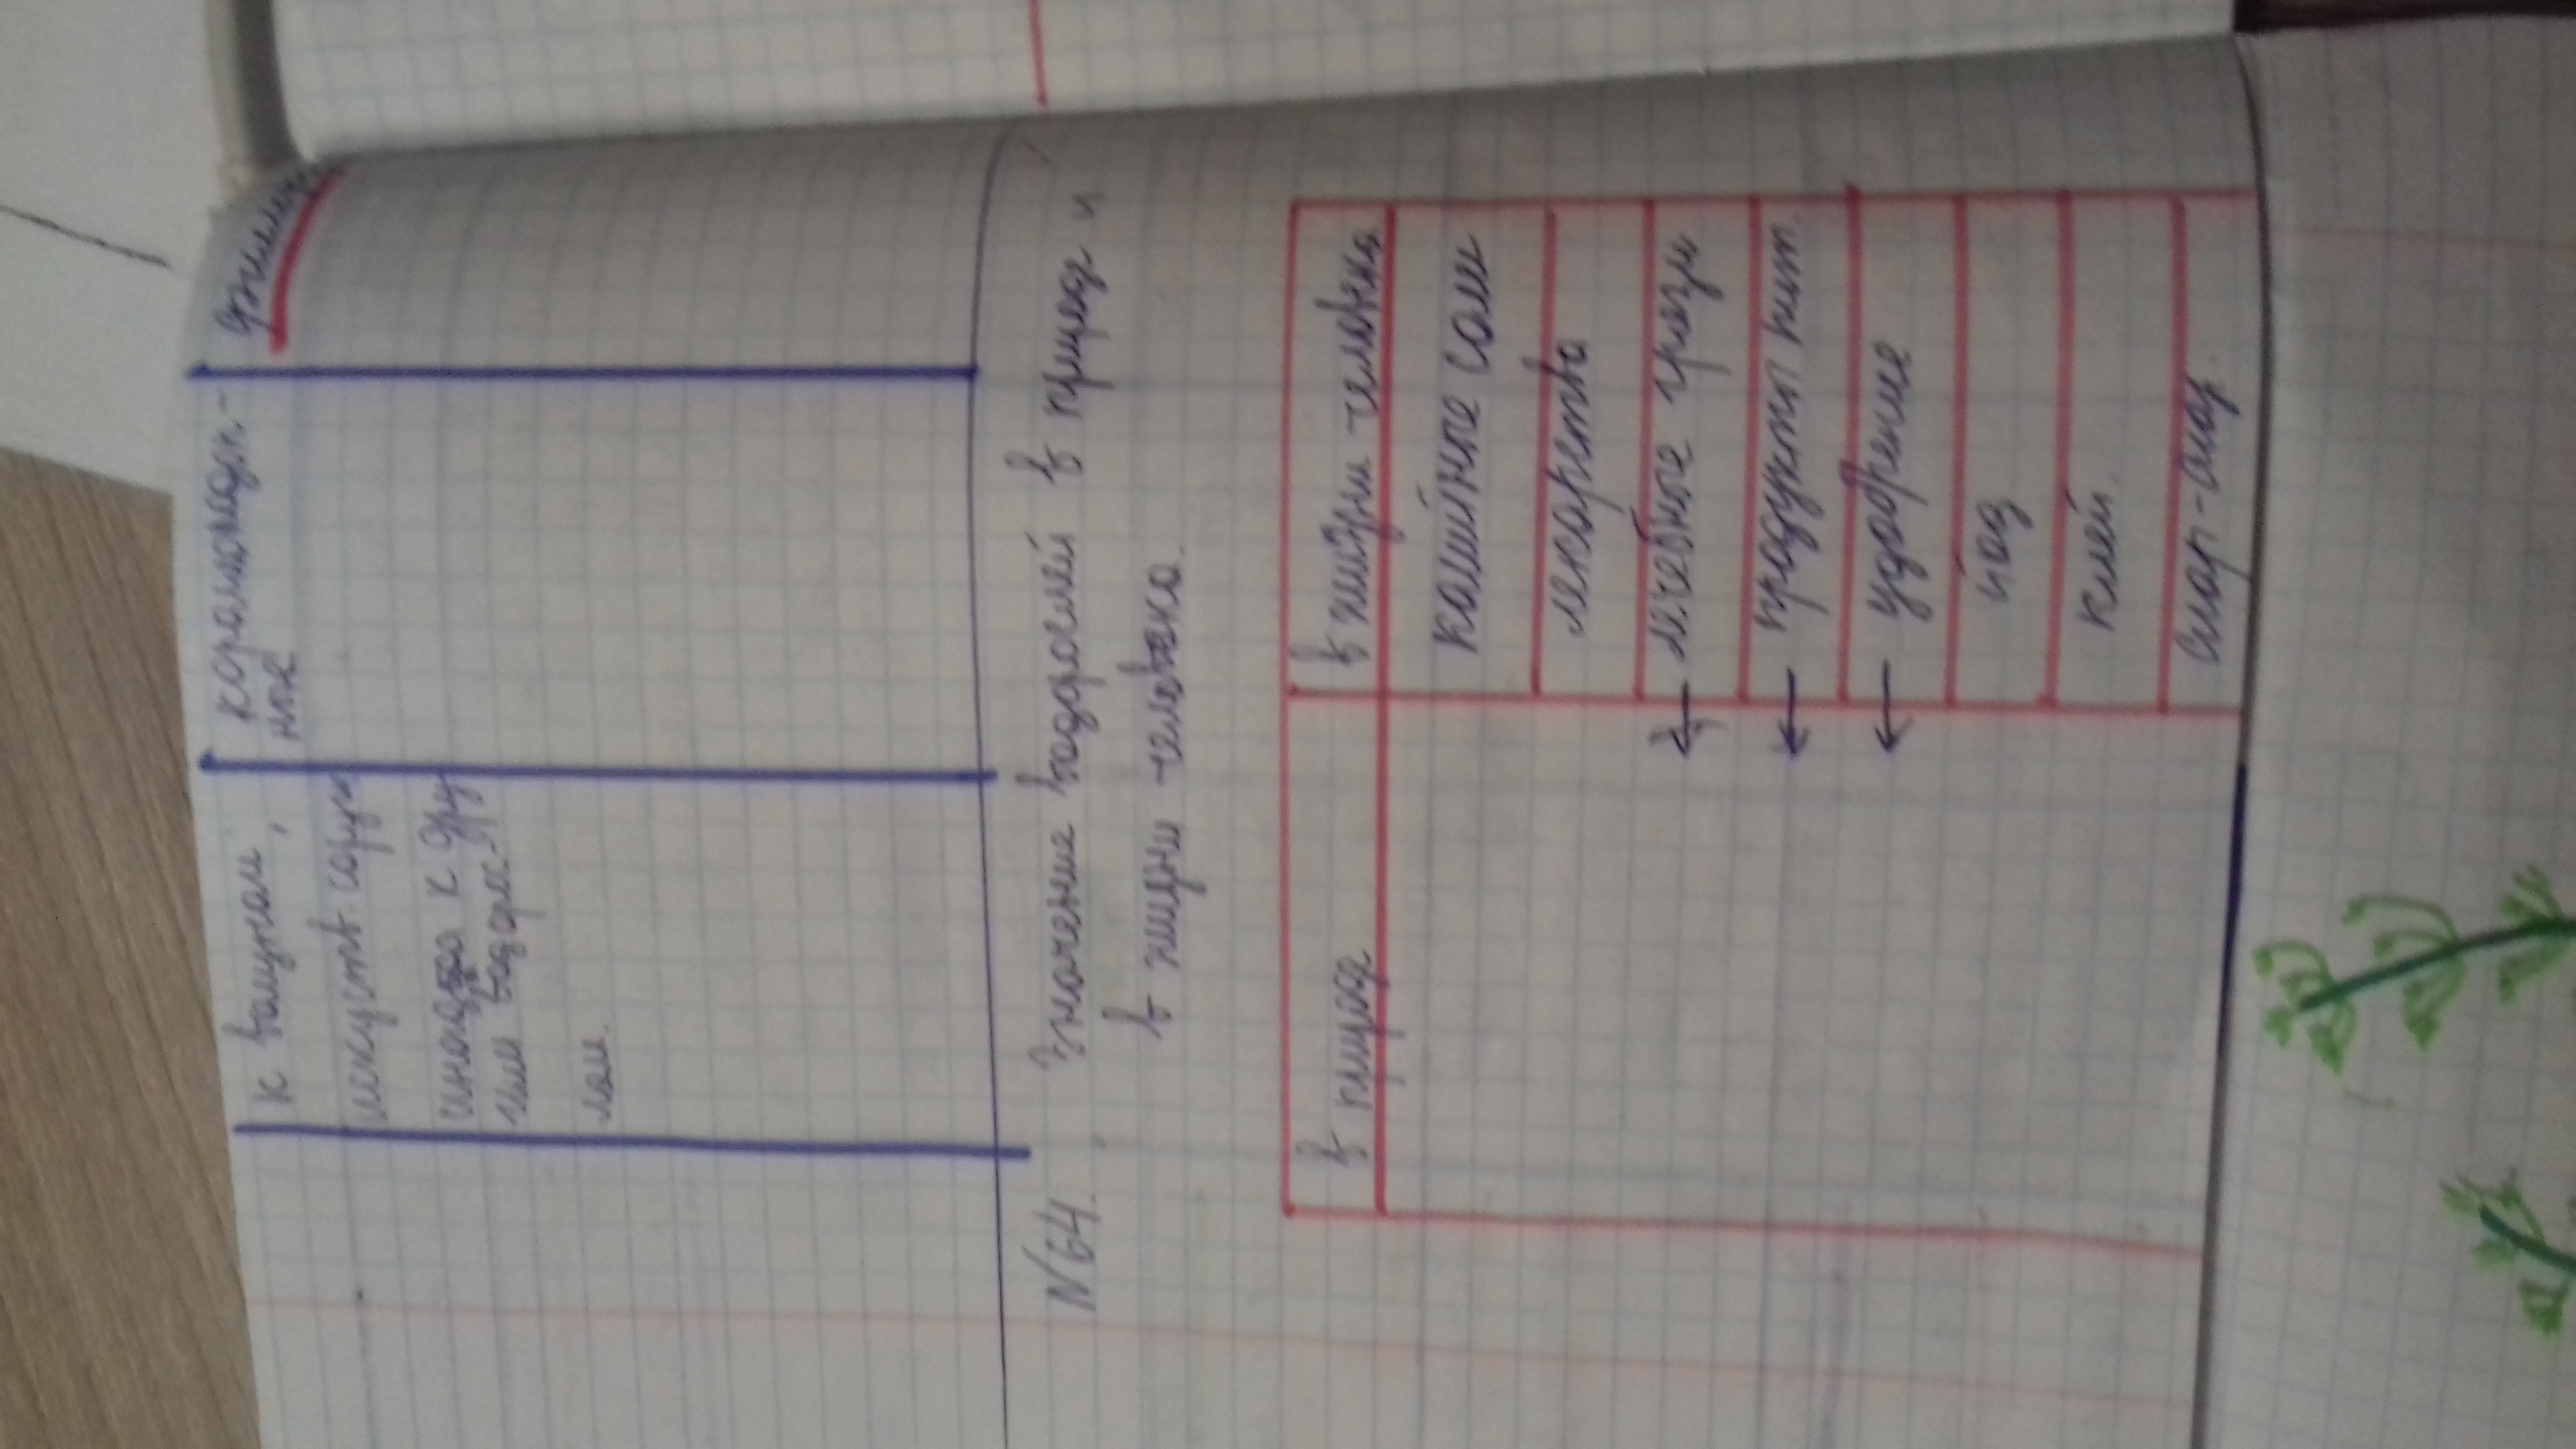 к камням,
искуств. сору
иногда к дру
гим водорос-
лям.
N64. Значение водорослей в природ и
в жизни человека.
в природ
в жизни человека
калийные соли
лекарства
← лечебное грязи
← продукты пит.
← удобрение
йод
клей
агар-агар.